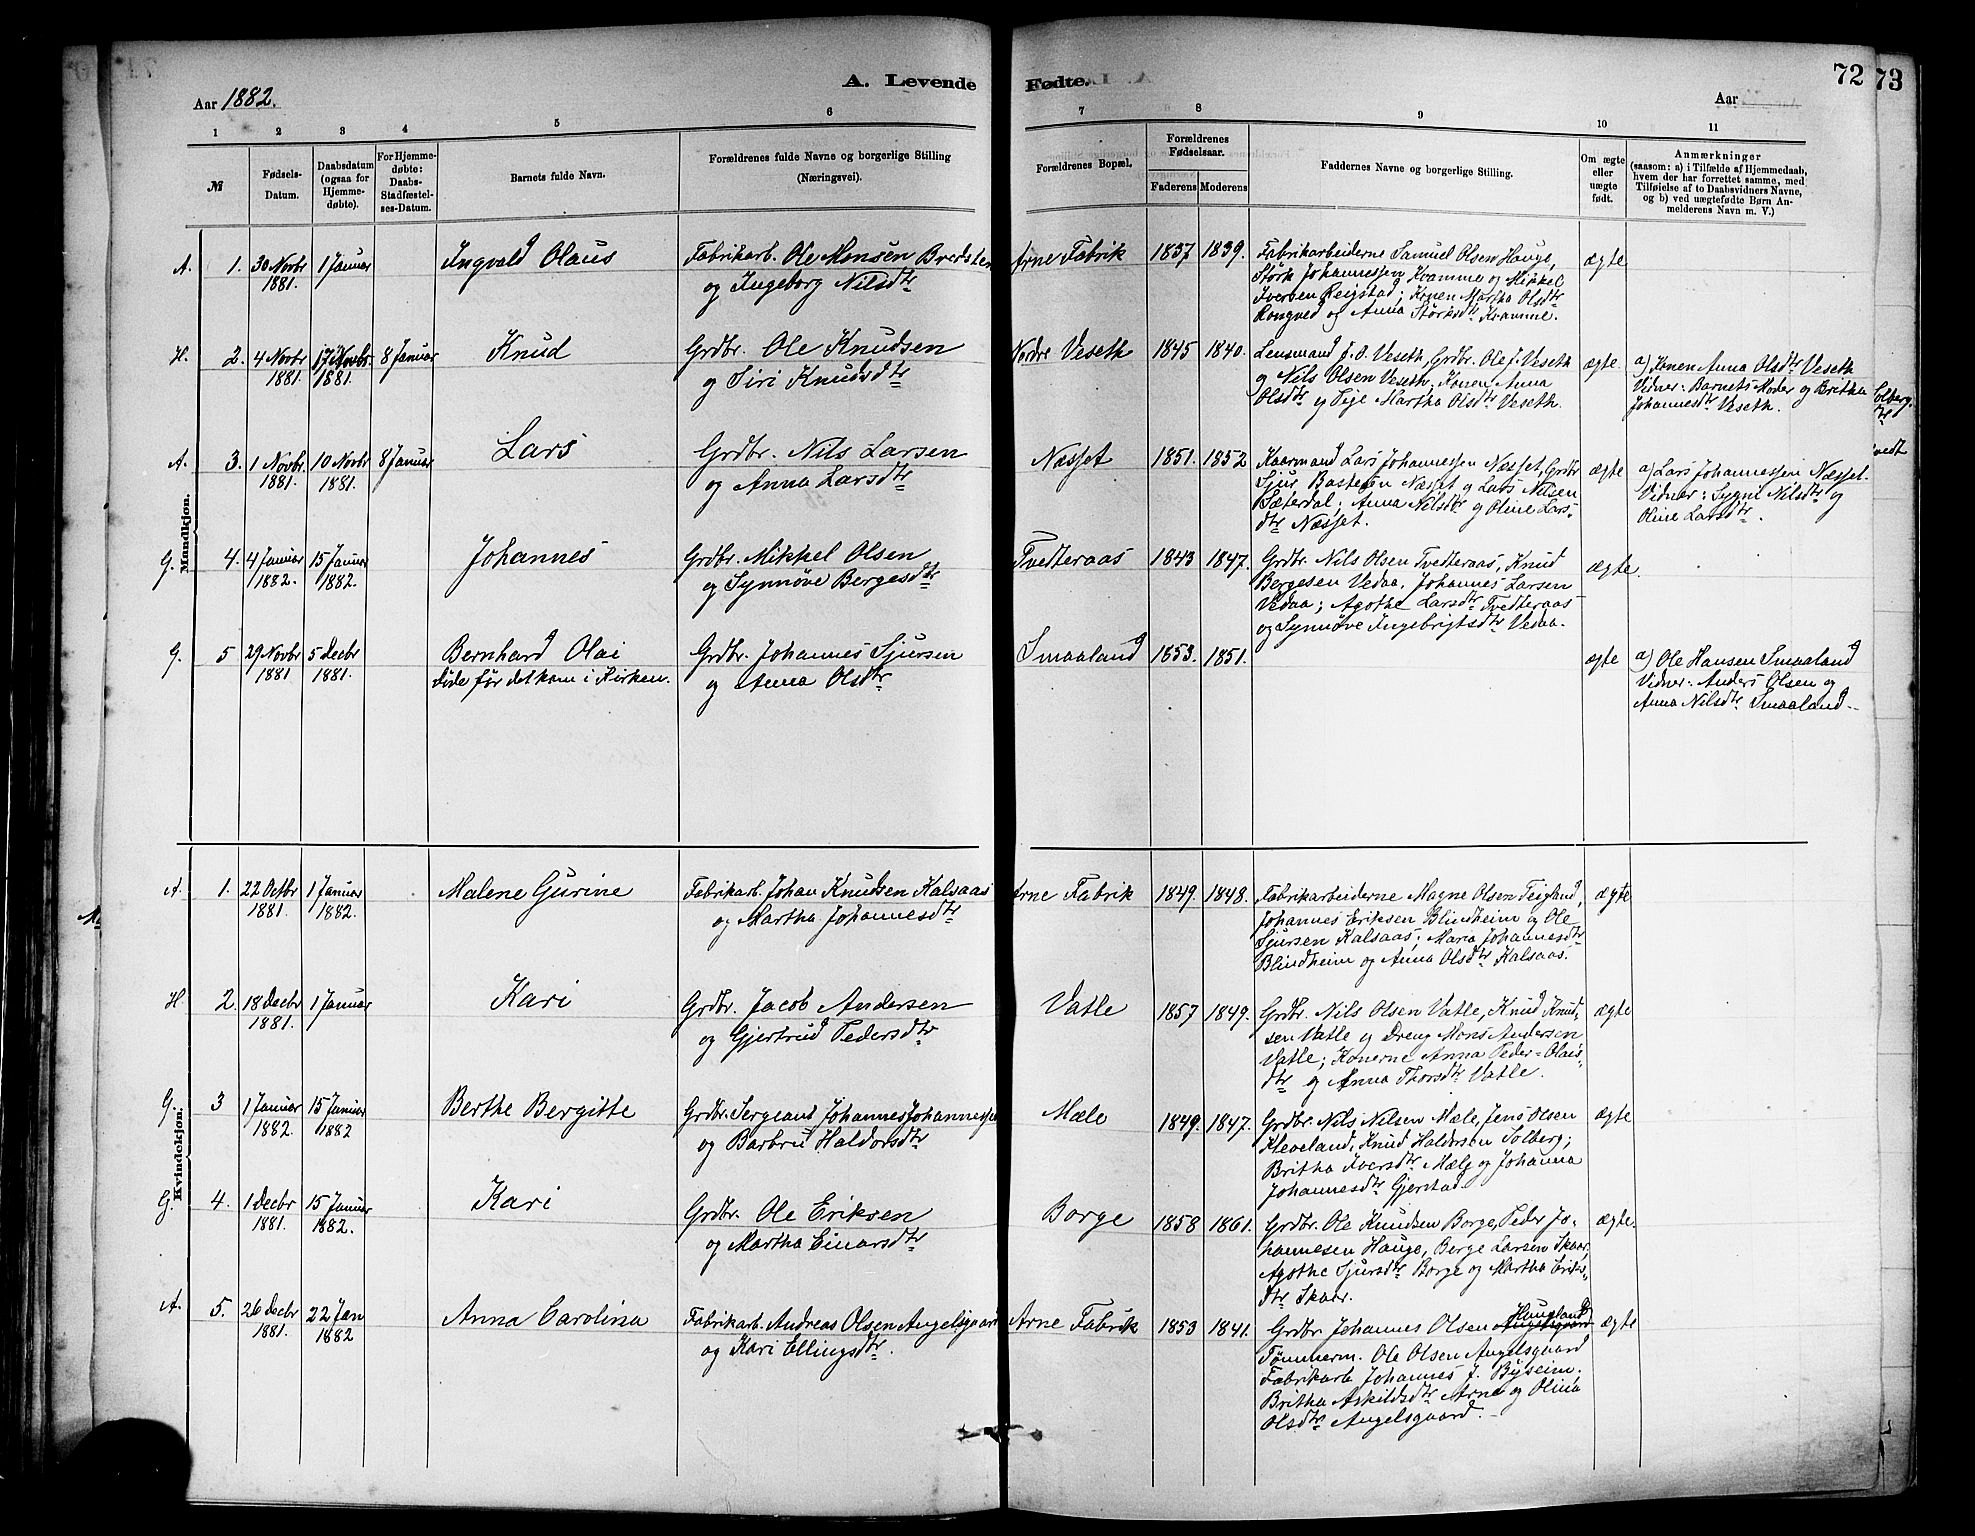 A. Levende Fødte.
72
73
Aar 1882.
Aar
1 2 3 4 5 6 7 8 9 10 11
№
Fødsels-Datum.
Daabsdatum (ogsaa for Hjemme-døbte).
For Hjemme-døbte: Daabs-Stadfæstel-ses-Datum.
Barnets fulde Navn.
Forældrenes fulde Navne og borgerlige Stilling
(Næringsvei).
Forældrenes Bopæl.
Forældrenes Fødselsaar.
Faderens. Moderens.
Faddernes Navne og borgerlige Stilling.
Om ægte eller uægte født.
Anmærkninger
(saasom: a) i Tilfælde af Hjemmedaab,
hvem der har forrettet samme, med
Tilføielse af to Daabsvidners Navne,
og b) ved uægtefødte Børn An-
melderens Navn m. V.)
Mandkjøn.
A. 1. 30 Novbr 1881. 1 Januar
Ingvald Olaus
Fabrikarb. Ole Monsen Bredsten
og Ingeborg Nilsdtr
Arne Fabrik 1837 1839.
Fabrikarbeiderne Samuel Olsen Hauge,
Störk Johannessen Kvamme og Mikkel
Iversen Reigstad; Konen Martha Olsdtr
Rongved og Anna Störksdtr Kvamme.
ægte
H. 2. 4 Novbr 1881. 17 Novbr. 1881. 8 Januar
Knud
Grdbr. Ole Knudsen
og Siri Knudsdtr
Nordre Veseth 1845 1840.
Lensmand J. O. Veseth, Grdbr. Ole J. Veseth
og Nils Olsen Veseth; Konen Anna
Olsdtr og Pige Martha Olsdtr Veseth.
ægte
a) Konen Anna Olsdtr Veseth
Vidner: Barnets Moder og Britha
Johannesdtr Veseth.
A. 3. 1 Novbr. 1881. 10 Novbr 1881. 8 Januar
Lars
Grdbr. Nils Larsen
og Anna Larsdtr
Næsset 1851. 1852
Kaarmand Lars Johannessen Næsset, Grdbr
Sjur Bastesen Næsset og Lars Nilsen
Sæterdal; Anna Nilsdtr og Oline Lars-
dtr Næsset.
ægte
a) Lars Johannessen Næsset.
Vidner: Sygni Nilsdtr og
Oline Larsdtr.
G. 4. 4 Januar 1882. 15 Januar 1882.
Johannes
Grdbr. Mikkel Olsen
og Synnöve Bergesdtr
Tvedteraas 1843 1847.
Grdbr. Nils Olsen Tvedteraas, Knud
Bergesen Vedaa, Johannes Larsen
Vedaa; Agothe Larsdtr Tvedteraas
og Synnöve Ingebrigtsdtr Vedaa.
ægte.
G. 5 29 Novbr 1881 5 Decbr 1881.
Bernhard Olai
döde för det kom i Kirken.
Grdbr. Johannes Sjursen
og Anna Olsdtr
Smaaland 1853. 1851.
ægte
a) Ole Hansen Smaaland
Vidner: Anders Olsen og
Anna Nilsdtr Smaaland.
Kvindekjøn.
A. 1. 22 Octbr 1881. 1 Januar 1882.
Malene Gurine
Fabrikarb. Johan Knudsen Kalsaas
og Martha Johannesdtr
Arne Fabrik 1849. 1848.
Fabrikarbeiderne Magne Olsen Teigland,
Johannes Eriksen Blindheim og Ole
Sjursen Kalsaas; Maria Johannesdtr
Blindheim og Anna Olsdtr Kalsaas.
ægte
H. 2. 18 Decbr 1881. 1 Januar
Kari
Grdbr. Jacob Andersen
og Gjertrud Pedersdtr
Vatle 1857 1849.
Grdbr. Nils Olsen Vatle, Knud Knud-
sen Vatle og Dreng Mons Andersen
Vatle; Konerne Anna Peder-Olais-
dtr og Anna Thorsdtr Vatle.
ægte
G. 3 1 Januar 1882. 15 Januar 1882
Berthe Bergitte
Grdbr. Sergeant Johannes Johannessen
og Barbru Haldorsdtr
Mæle 1849. 1847.
Grdbr. Nils Nilsen Mæle, Jens Olsen
Kleveland, Knud Haldorsen Solberg;
Britha Iversdtr Mæle og Johanna
Johannesdtr Gjerstad
ægte
G. 4. 1 Decbr 1881. 15 Januar 1882.
Kari
Grdbr. Ole Eriksen
og Martha Einarsdtr
Borge 1858 1861.
Grdbr. Ole Knudsen Borge, Peder Jo-
hannesen Hauge, Berge Larsen Skaar.
Agothe Sjursdtr Borge og Martha Eriks-
dtr Skaar.
ægte.
A. 5. 26 Decbr 1881. 22 Jan 1882
Anna Carolina
Fabrikarb. Andreas Olsen Angelsgaard
og Kari Ellingsdtr.
Arne Fabrik 1853 1841.
Haugland
Grdbr Johannes Olsen Angelsgaard
Tömmerm. Ole Olsen Angelsgaard
Fabrikarb Johannes J. Byseim.
Britha Askildsdtr Arne og Olina
Olsdtr Angelsgaard.
ægte